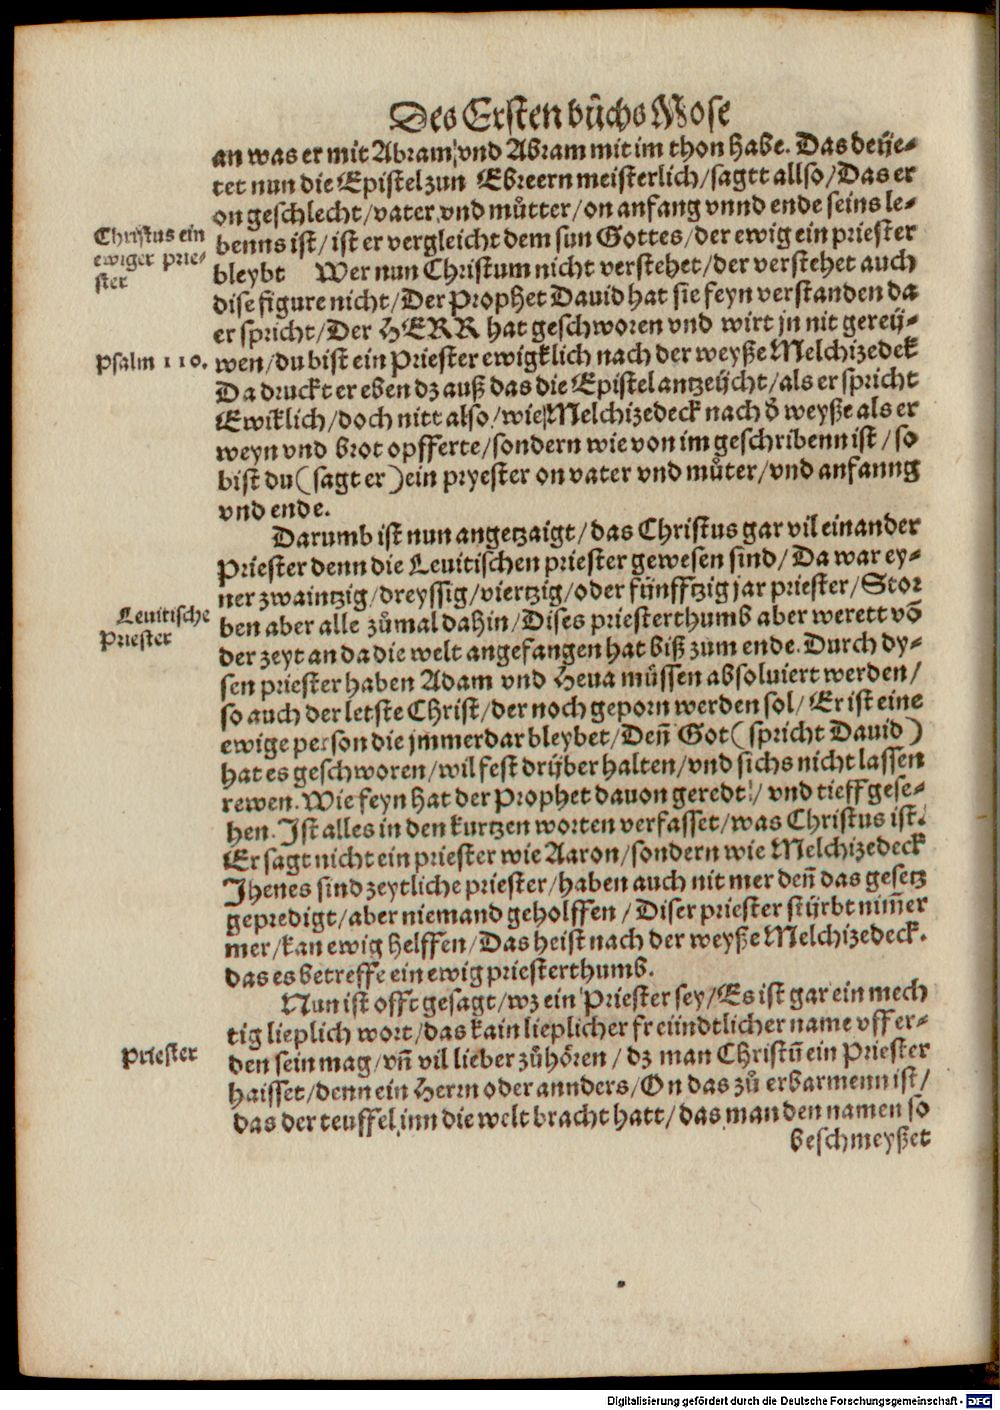 Des Ersten bůchs Mose
an was er mit Abram/ vnd Abram mit im thon habe. Das deije-
tet nun die Epistel zun Ebreern meisterlich/ sagtt allso/ Das er
on geschlecht/ vater vnd můtter/ on anfang vnnd ende seins le-
Christus ein
ewiger prie-
ster
benns ist/ ist er vergleicht dem sun Gottes/ der ewig ein priester
bleybt Wer nun Christum nicht verstehet/ der verstehet auch
dise figure nicht/ Der Prophet Dauid hat sie feyn verstanden da
er spricht/ Der HERR hat geschworen vnd wirt jn nit gereij-
Psalm 110.
wen/ du bist ein Priester ewigklich nach der weyße Melchizedek
Da druckt er eben dz auß das die Epistel antzeijcht/ als er spricht
Ewiklich/ doch nitt also/ wie Melchizedeck nach d̕ weyße als er
weyn vnd brot opfferte/ sondern wie von im geschribenn ist/ so
bist du (sagt er) ein pryester on vater vnd můter/ vnd anfanng
vnd ende.
Darumb ist nun angetzaigt/ das Christus gar vil ein ander
Priester denn die Leuitischen priester gewesen sind/ Da war ey-
ner zwaintzig/ dreyssig/ viertzig/ oder fijnfftzig jar priester/ Stor
Leuitische
Priester
ben aber alle zůmal dahin/ Dises priesterthumb aber werett vō
der zeyt an da die welt angefangen hat biß zum ende. Durch dy-
sen priester haben Adam vnd Heua müssen absoluiert werden/
so auch der letste Christ/ der noch geporn werden sol/ Er ist eine
ewige person die jmmerdar bleybet/ Deñ Got (spricht Dauid)
hat es geschworen/ wil fest drijber halten/ vnd sichs nicht lassen
rewen. Wie feyn hat der Prophet dauon geredt/ vnd tieff gese-
hen. Ist alles in den kurtzen worten verfasset/ was Christus ist.
Er sagt nicht ein priester wie Aaron/ sondern wie Melchizedeck
Jhenes sind zeytliche priester/ haben auch nit mer deñ das gesetz
gepredigt/ aber niemand geholffen/ Diser priester stijrbt nim̃er
mer/ kan ewig helffen/ Das heist nach der weyße Melchizedeck.
das es betreffe ein ewig priesterthumb.
Nun ist offt gesagt/ wz ein Priester sey/ Es ist gar ein mech
tig lieplich wort/ das kain lieplicher freiindtlicher name vff er-
Priester
den sein mag/ vñ vil lieber zůhören/ dz man Christū ein Priester
haisset/ denn ein Herrn oder annders/ On das zů erbarmenn ist/
das der teuffel inn die welt bracht hatt/ das man den namen so
beschmeyßet
Digitalisierung gefördert durch die Deutsche Forschungsgemeinschaft - DFG